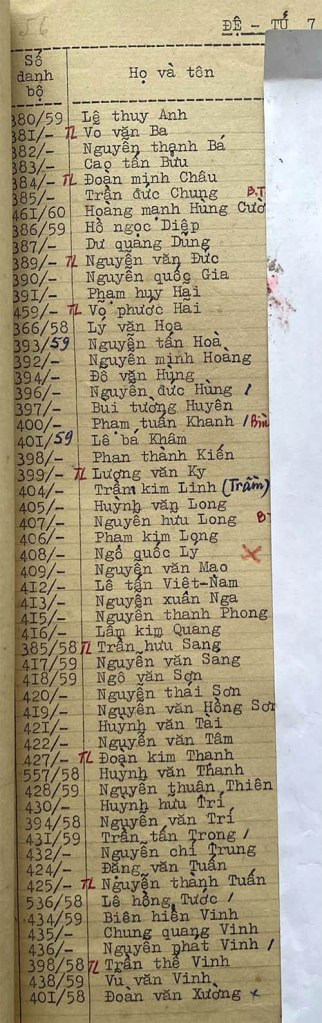 56
ĐỆ - TỨ 7
Số danh bộ Họ và tên
380/59 Lê thuy Anh
381/- TL Vo văn Ba
382/- Nguyễn thạnh Bá
383/- Cao tấn Bửu
384/- TL Đoàn minh Châu
385/- Trần đức Chung B.T
461/60 Hoàng mạnh Hùng Cườ
386/59 Hồ ngọc Diệp
387/- Dư quang Dũng
389/- TL Nguyễn văn Đức
390/- Nguyễn quốc Gia
391/- Phạm huy Hai
459/- TL Võ phước Hai
366/58 Lý văn Họa
393/59 Nguyễn tấn Hoà
392/- Nguyễn minh Hoàng
394/- Đỗ văn Hùng
396/- Nguyễn đức Hùng /
397/- Bùi tường Huyên
400/- Phạm tuấn Khanh /
401/59 Lê bá Khâm
398/- Phan thành Kiến
399/- TL Lương văn Ky
404/- Trầm kim Linh (Trầm)
405/- Huỳnh văn Long
407/- Nguyễn hưu Long
406/- Phạm kim Long
408/- Ngô quốc Ly X
409/- Nguyễn văn Mao
412/- Lê tấn Việt-Nam
413/- Nguyễn xuân Nga
415/- Nguyễn thanh Phong
416/- Lâm kim Quang
385/58 TL Trần hưu Sang
417/59 Nguyễn văn Sang
418/59 Ngô văn Sơn
420/- Nguyễn thái Sơn
419/- Nguyễn văn Hồng Sơn
421/- Huỳnh văn Tai
422/- Nguyễn văn Tâm
427/- TL Đoàn kim Thanh
557/58 Huỳnh văn Thanh
428/59 Nguyễn thuân Thiên
430/- Huỳnh hưu Trí
394/58 Nguyễn văn Trí
431/59 Trần tấn Trong /
432/- Nguyễn chí Trung
424/- Đặng văn Tuấn
425/- TL Nguyễn thành Tuấn
536/58 Lê hồng Tước /
434/59 Biên hiển Vinh
435/- Chung quang Vinh
436/- Nguyễn phát Vinh /
398/58 TL Trần thế Vinh
438/59 Vu văn Vinh
401/58 Đoàn văn Xường x